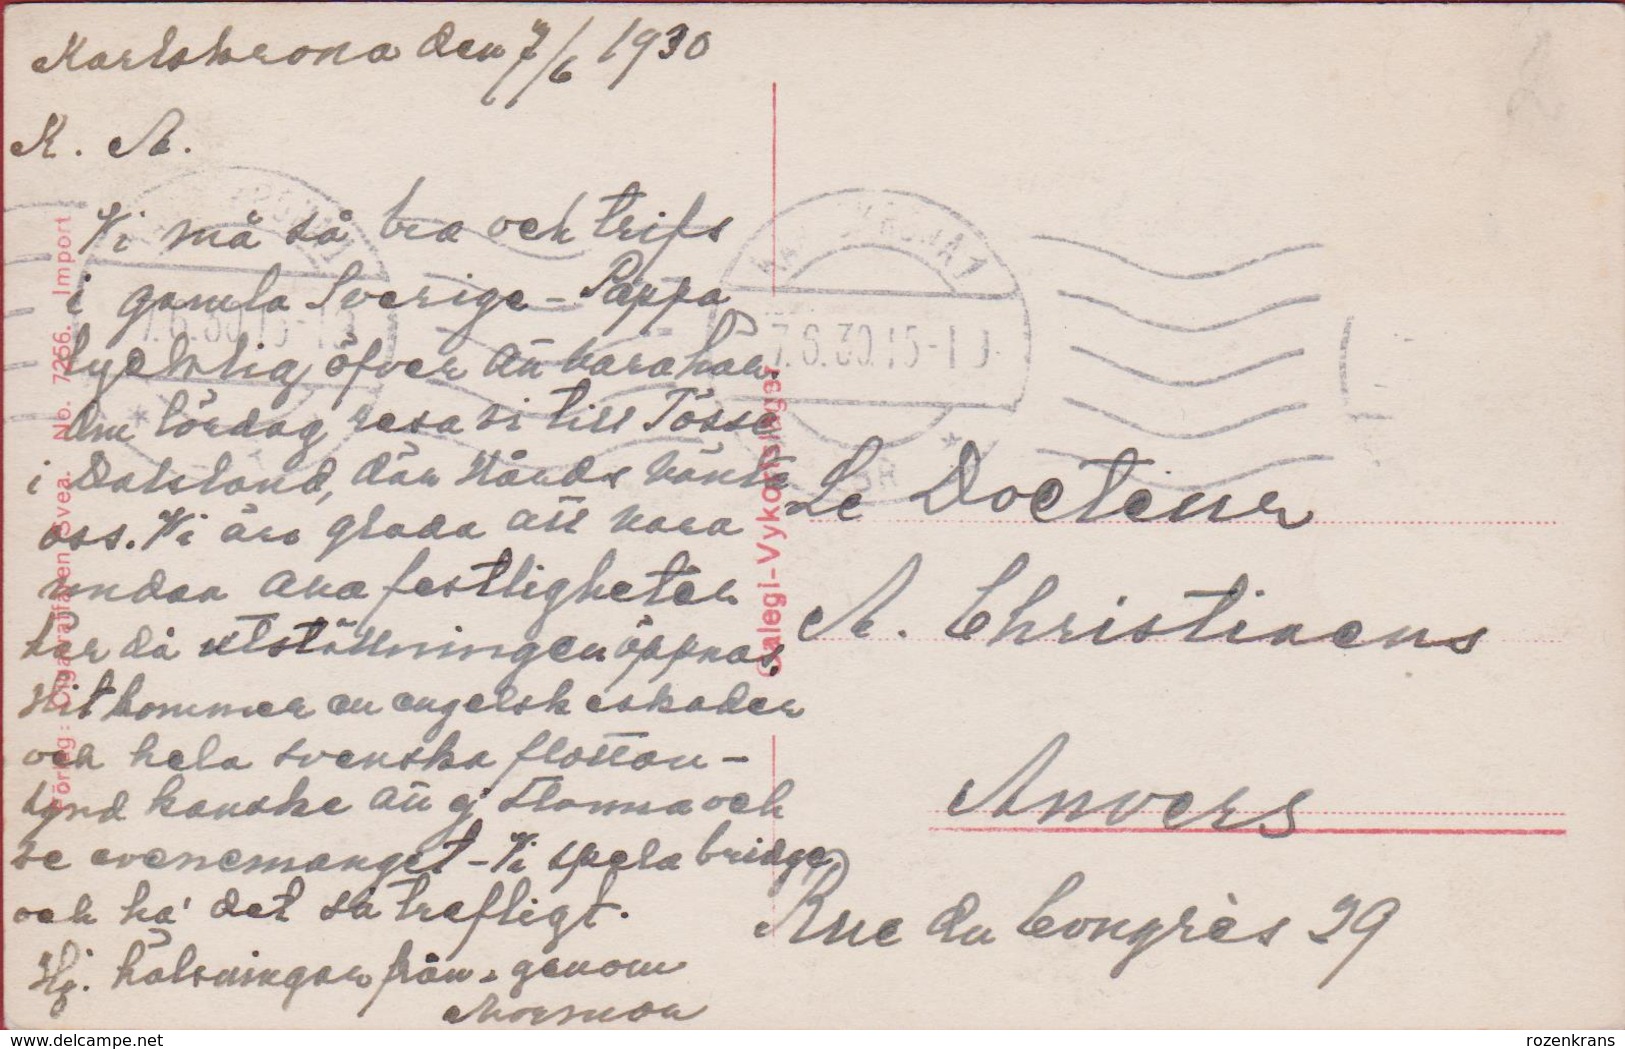 Karlskrona den 7/6 1930
K. A.
Vi må så bra och trifs
i gamla Sverige - Pappa
lycklig öfver att vara här.
Om lördag resa vi till Tösse
i Dalsland, där Hårds vänta
oss. Vi äro glada att vara
undan alla festligheter
här då utställningen öppnas.
Hit kommer en engelsk eskader
och hela svenska flottan -
synd kanske att ej stanna och
se evenemanget - Vi spela bridge
och ha' det så trefligt.
Hj. hälsningar från genom
Mormor
Förlag: Cigarraffären Svea. No. 7256. Import
Galegi-Vykortslager
KARLSKRONA 1
7.6.30.15-1
Le Docteur
A. Christiaens
Anvers
Rue du Congrès 29
www.delcampe.net
rozenkrans